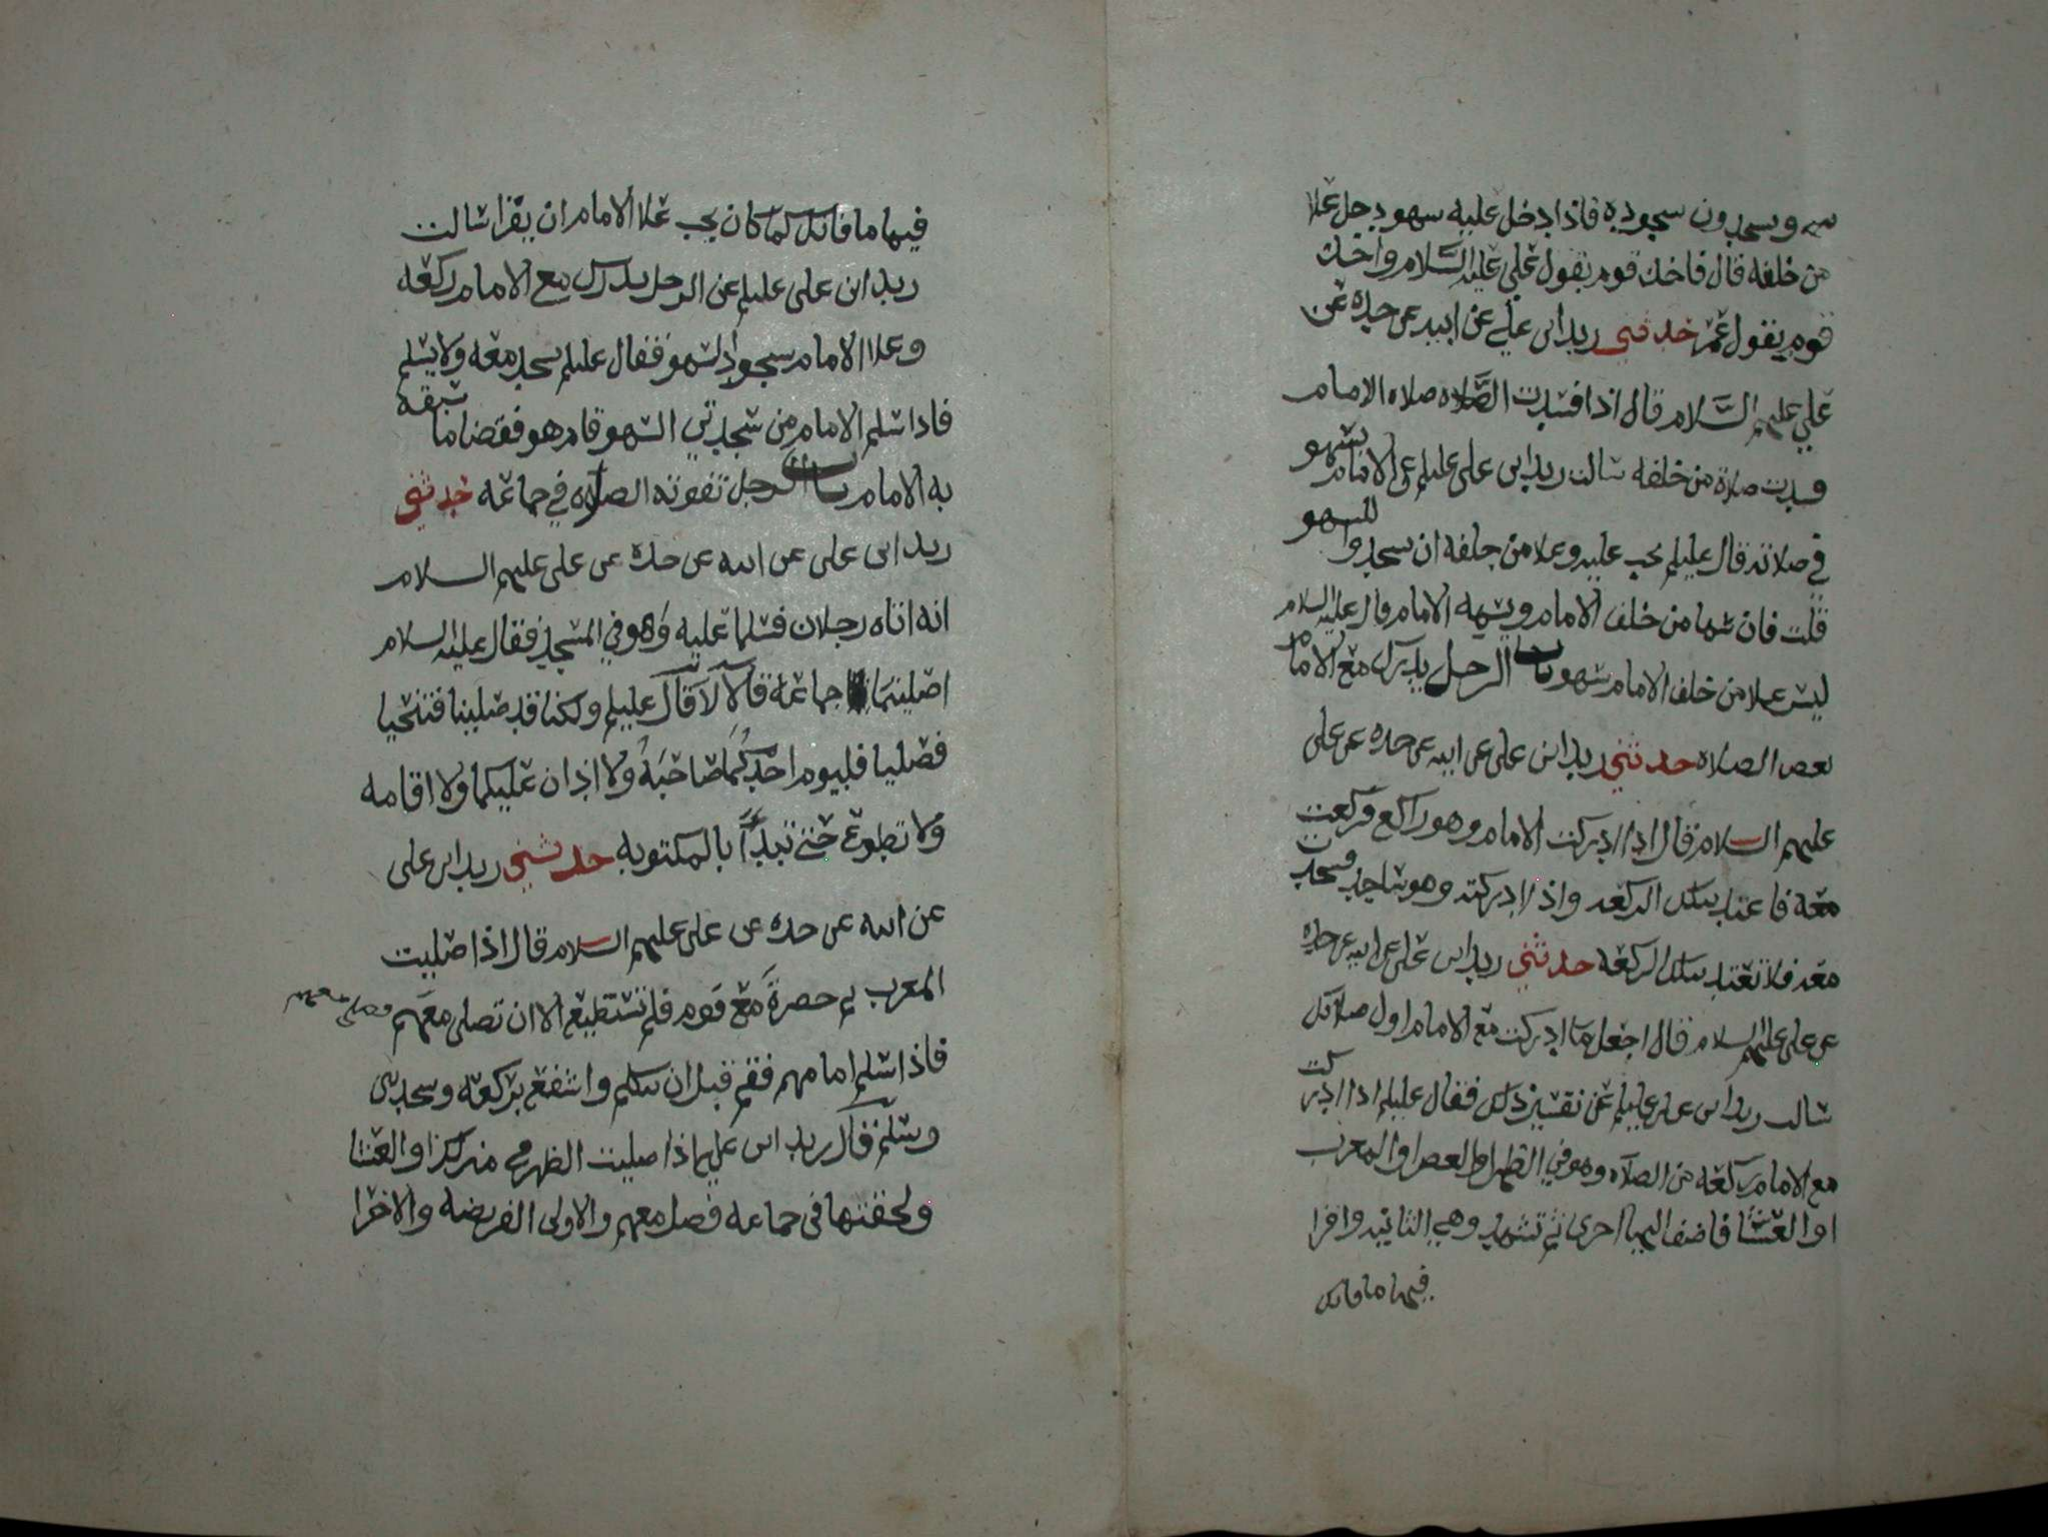 سه ويسجدون سجوده فاذا دخل عليه سهو دخل علا
من خلفه قال فاخذ قوم بقول علي عليه السلام واخذ
قوم بقول عمر حدثني زيد ابن علي عن ابيه عن جده عن
علي عليهم السلام قال اذا فسدت الصلاه صلاه الامام
فسدت صلاة من خلفه سالت زيد ابن علي عليلم عن الامام يسهو
في صلاته قال عليلم يجب عليه وعلا من خلفه ان يسجدوا للسهو
قلت فان سها من خلف الامام ولم يسه الامام قال عليه السلام
ليس علا من خلف الامام سهو باب الرجل يدرك مع الامام
بعض الصلاه حدثني زيد ابن علي عن ابيه عن جده عن علي
عليهم السلام قال اذا ادركت الامام وهو راكع فركعت
معه فاعتد بتلك الركعه واذا ادركته وهو ساجد فسجدت
معه فلا تعتد بتلك الركعه حدثني زيد ابن علي عن ابيه عن جده
عن علي عليهم السلام قال اجعل ما ادركت مع الامام اول صلاتك
سالت زيد ابن علي عليلم عن تفسير ذلك فقال عليلم اذا ادركت
مع الامام ركعه من الصلاه وهو في الظهر او العصر او المغرب
او العشا فاضف اليها اخرى ثم تشهد وهي الثانيه واقرا
فيها ما فاتك
فيها ما فاتك كما كان يجب علا الامام ان يقرا سالت
زيد ابن علي عليلم عن الرجل يدرك مع الامام ركعه
وعلا الامام سجود السهو فقال عليلم يسجد معه ولا يسلم
فاذا سلم الامام من سجدتي السهو قام هو فقضا ما سبقه
به الامام باب الرجل تفوته الصلاه في جماعه حدثني
زيد ابن علي عن ابيه عن جده عن علي عليهم السلام
انه اتاه رجلان فسلما عليه وهو في المسجد فقال عليه السلام
اصليتما جماعة قالا لا قال عليلم ولكنا قد صلينا فتنحيا
فصليا فليوم احدكما صاحبه ولا اذان عليكما ولا اقامه
ولا تطوع حتى تبدأا بالمكتوبه حدثني زيد ابن علي
عن ابيه عن جده عن علي عليهم السلام قال اذا صليت
المغرب ثم حضرة مع قوم فلم تستطيع الا ان تصلي معهم فصلي معهم
فاذا سلم امامهم فقم قبل ان تتكلم واشفع بركعه وسجدتين
وسلم قال زيد ابن علي اذا صليت الظهر في منزلك او العشا
ولحقتها في جماعه فصل معهم والاولى الفريضه والاخرا